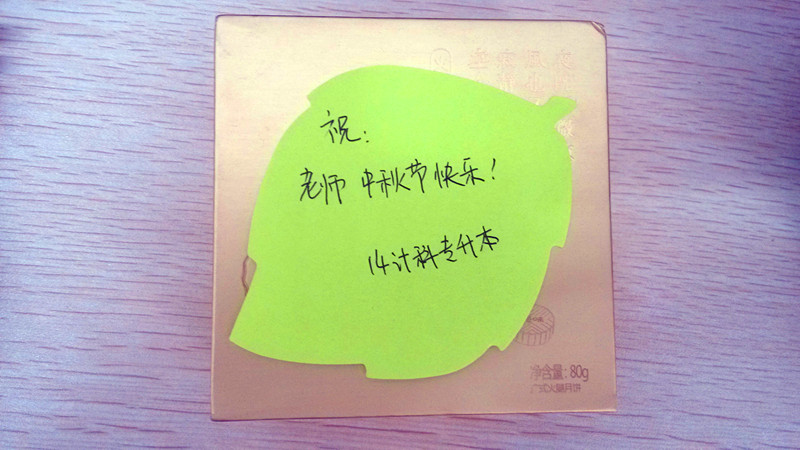 祝：
老师 中秋节快乐！
14计科专升本
净含量：80g
广式火腿月饼